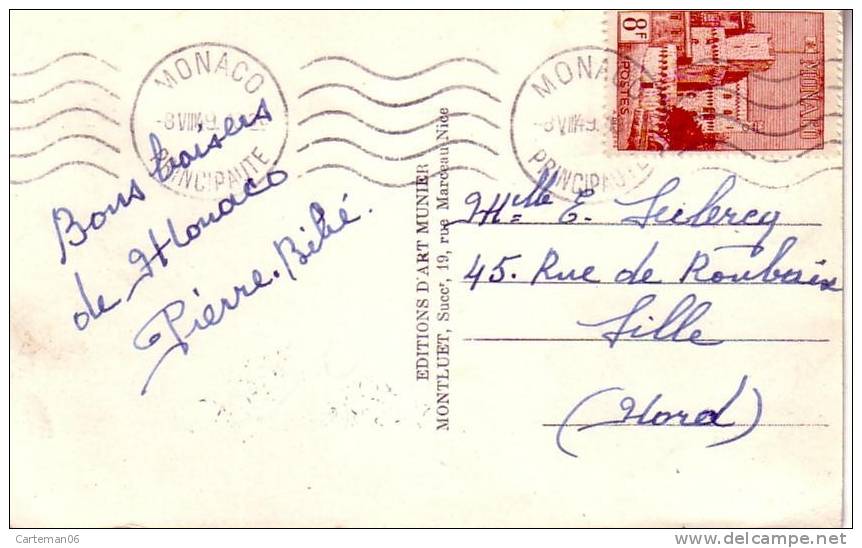 MONACO
-8 VII 49
PRINCIPAUTE
MONACO
-8 VII 49
PRINCIPAUTE
8F
POSTES
MONACO
Bons baisers
de Monaco
Pierre. Bébé.
EDITIONS D'ART MUNIER
MONTLUET, Succr, 19, rue Marceau-Nice
Mlle E.
45. Rue de Roubaix
Lille
(Nord)
Carteman06
delcampe.net